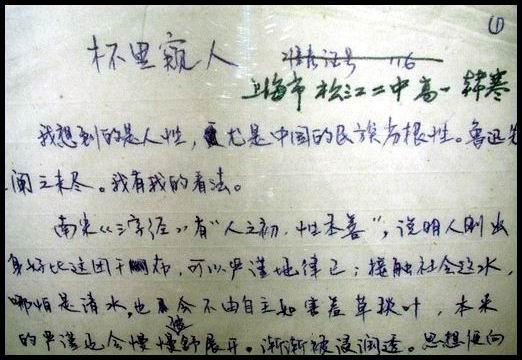 ①
杯里窥人 准考证号 116
上海市松江二中高一 韩寒
我想到的是人性，尤是中国的民族劣根性。鲁迅先
阐之未尽。我有我的看法。
南宋《三字经》有"人之初.性本善"，说明人刚出
身好比这团干布，可以严谨地律己；接触社会这水，
哪怕是清水，也会不由自主如害羞草敛叶，本来
的严谨也会慢慢地舒展开。渐渐被浸润透。思想便向